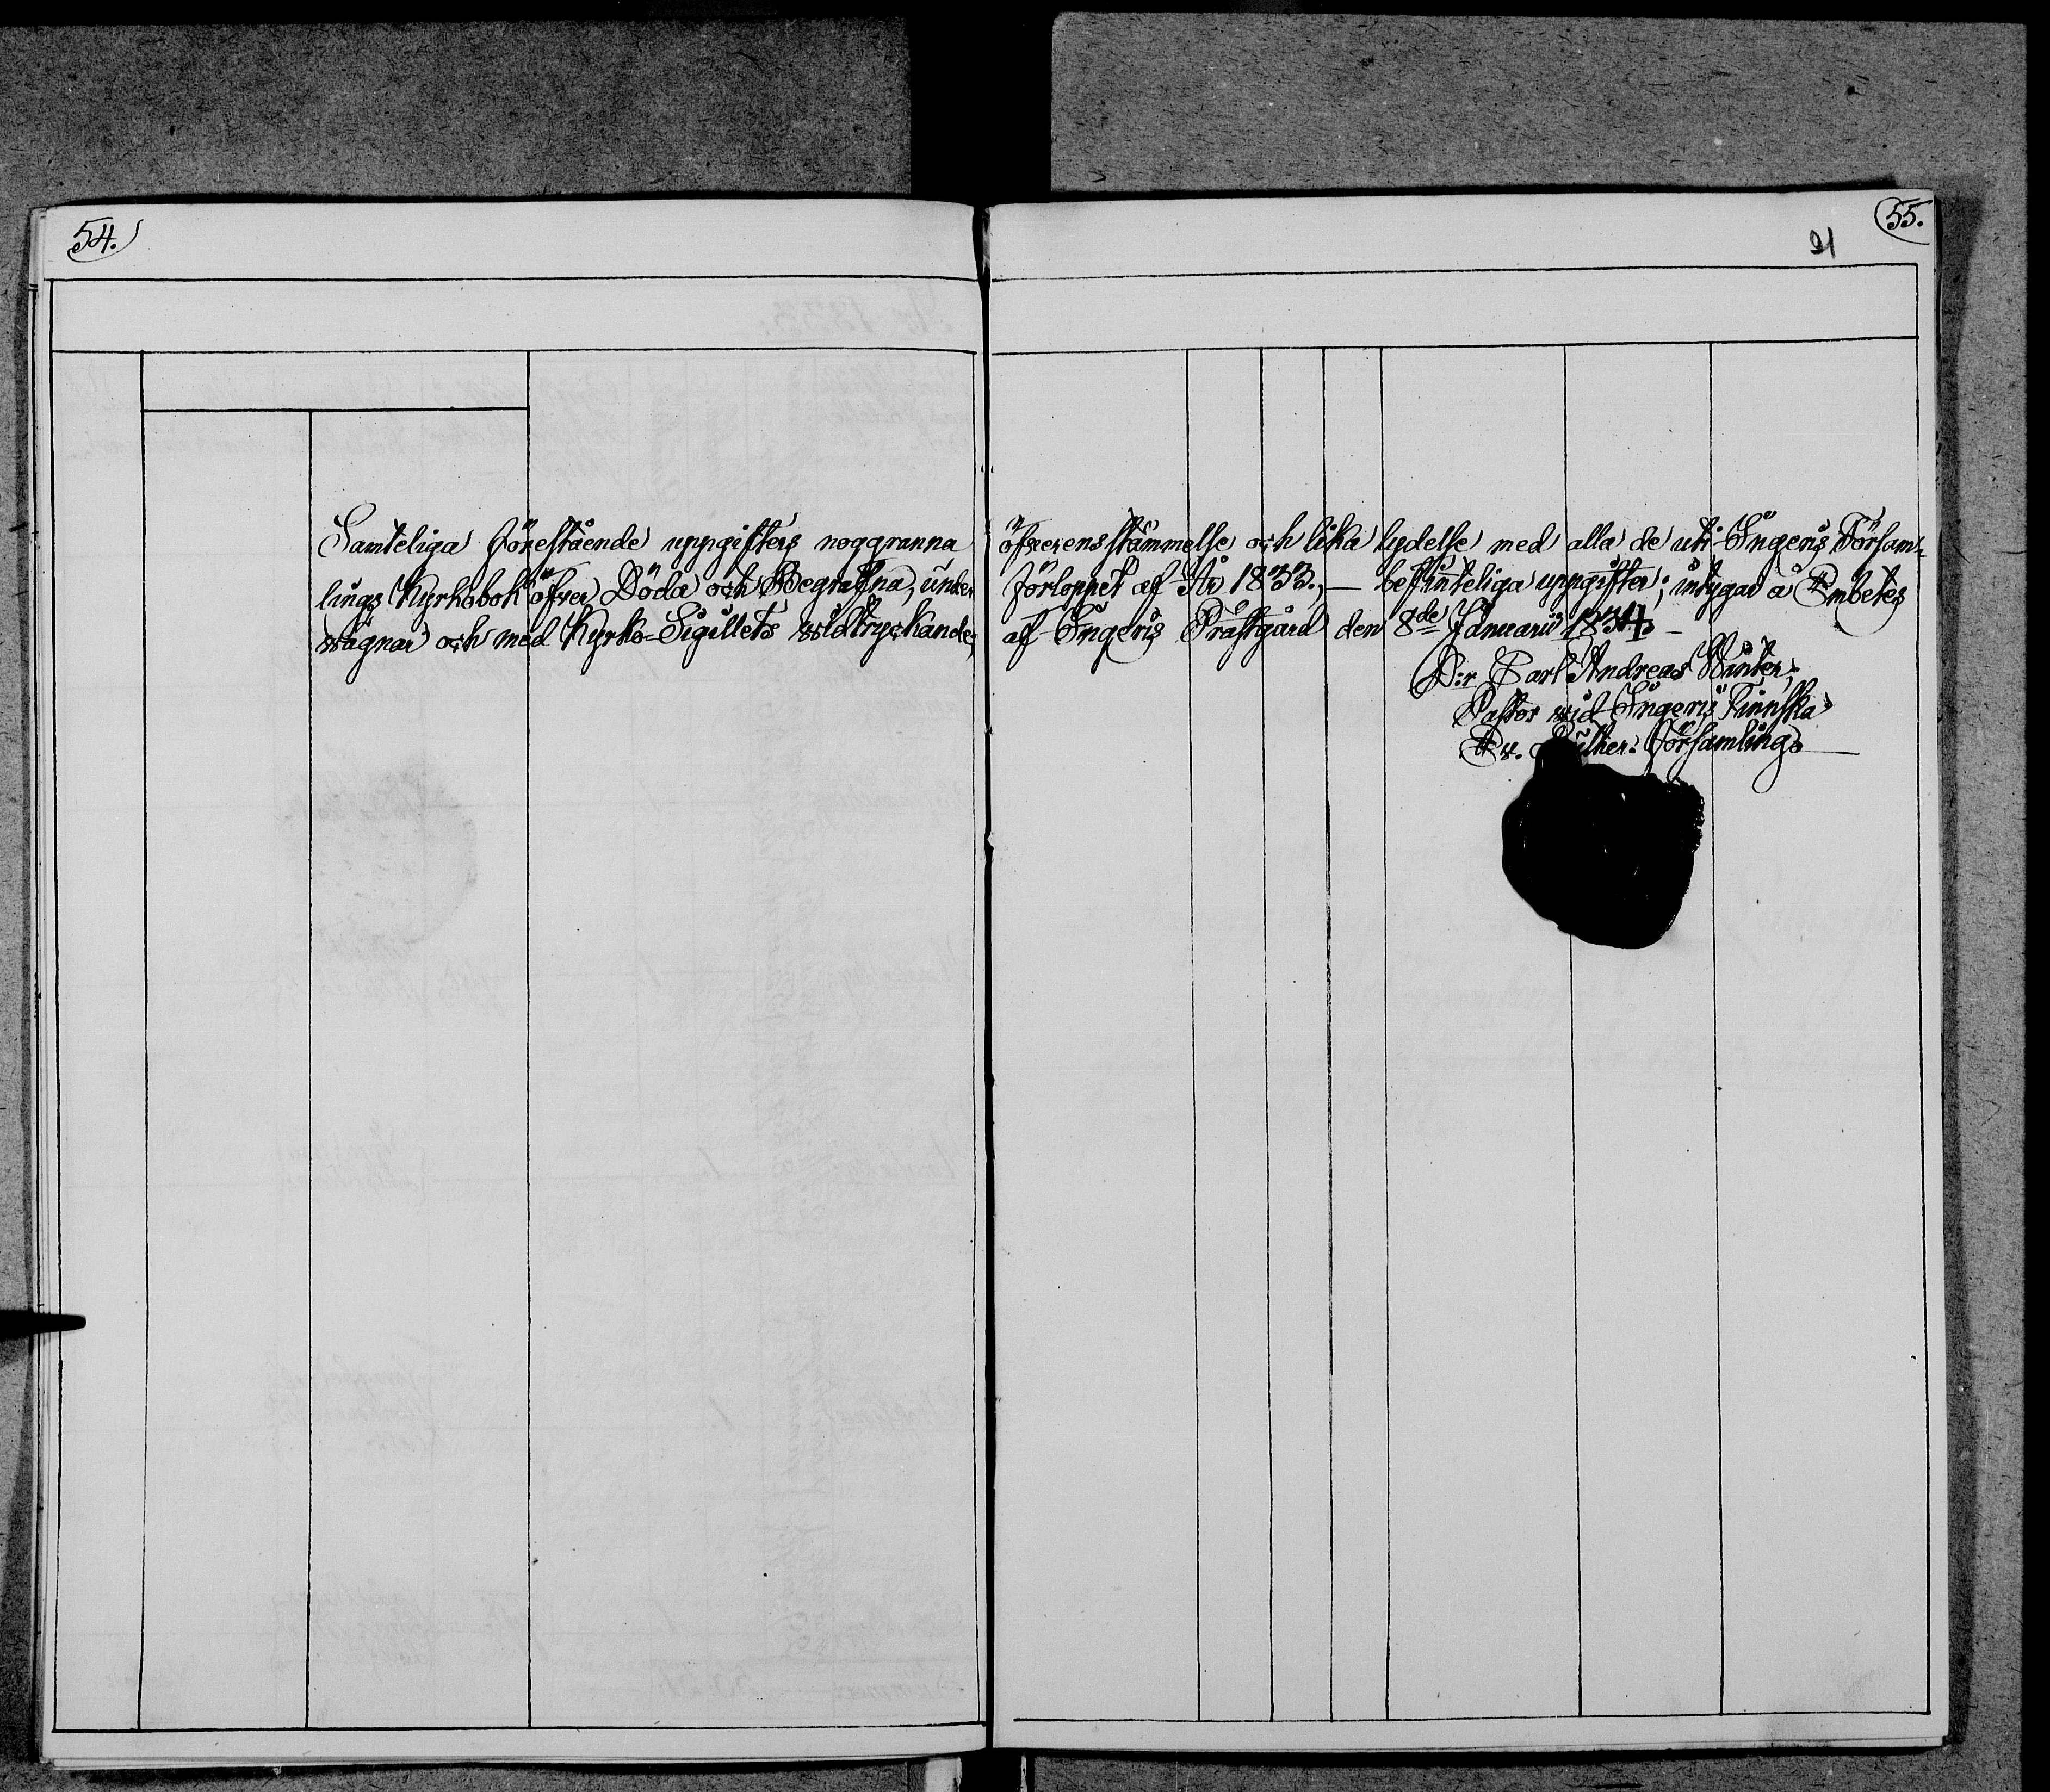 54.
55.
21
Samteliga förestående uppgifters noggranna öfverensstämmelse och lika lydelse med alla de uti Ingeris Försam-
lings Kyrkobok öfver Döda och Begrafna, under förloppet af År 1833., — befinteliga uppgifter; intygar å Embetes
wägnar och med Kyrko-Sigillets widtryckande; af Ingeris Prästgård den 8de Januarii 1834. —
D:r Carl Andreas Winter,
Pastor wid Ingeris Finnska
Ev. Luther: Församling.